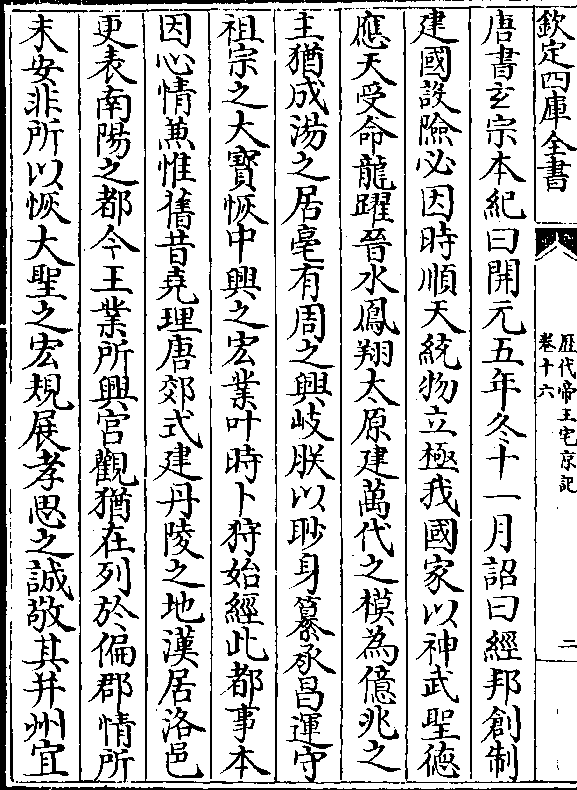 欽定四庫全書
歷代帝王宅京記
卷十六
二
唐書玄宗本紀曰開元五年冬十一月詔曰經邦創制
建國設險必因時順天統物立極我國家以神武聖德
應天受命龍躍晉水鳳翔太原建萬代之模為億兆之
主猶成湯之居亳有周之興岐朕以眇身纂承昌運守
祖宗之大寶恢中興之宏業叶時卜狩始經此都事本
因心情兼惟舊昔堯理唐郊式建丹陵之地漢居洛邑
更表南陽之都今王業所興宮觀猶在列於偏郡情所
未安非所以恢大聖之宏規展孝思之誠敬其并州宜